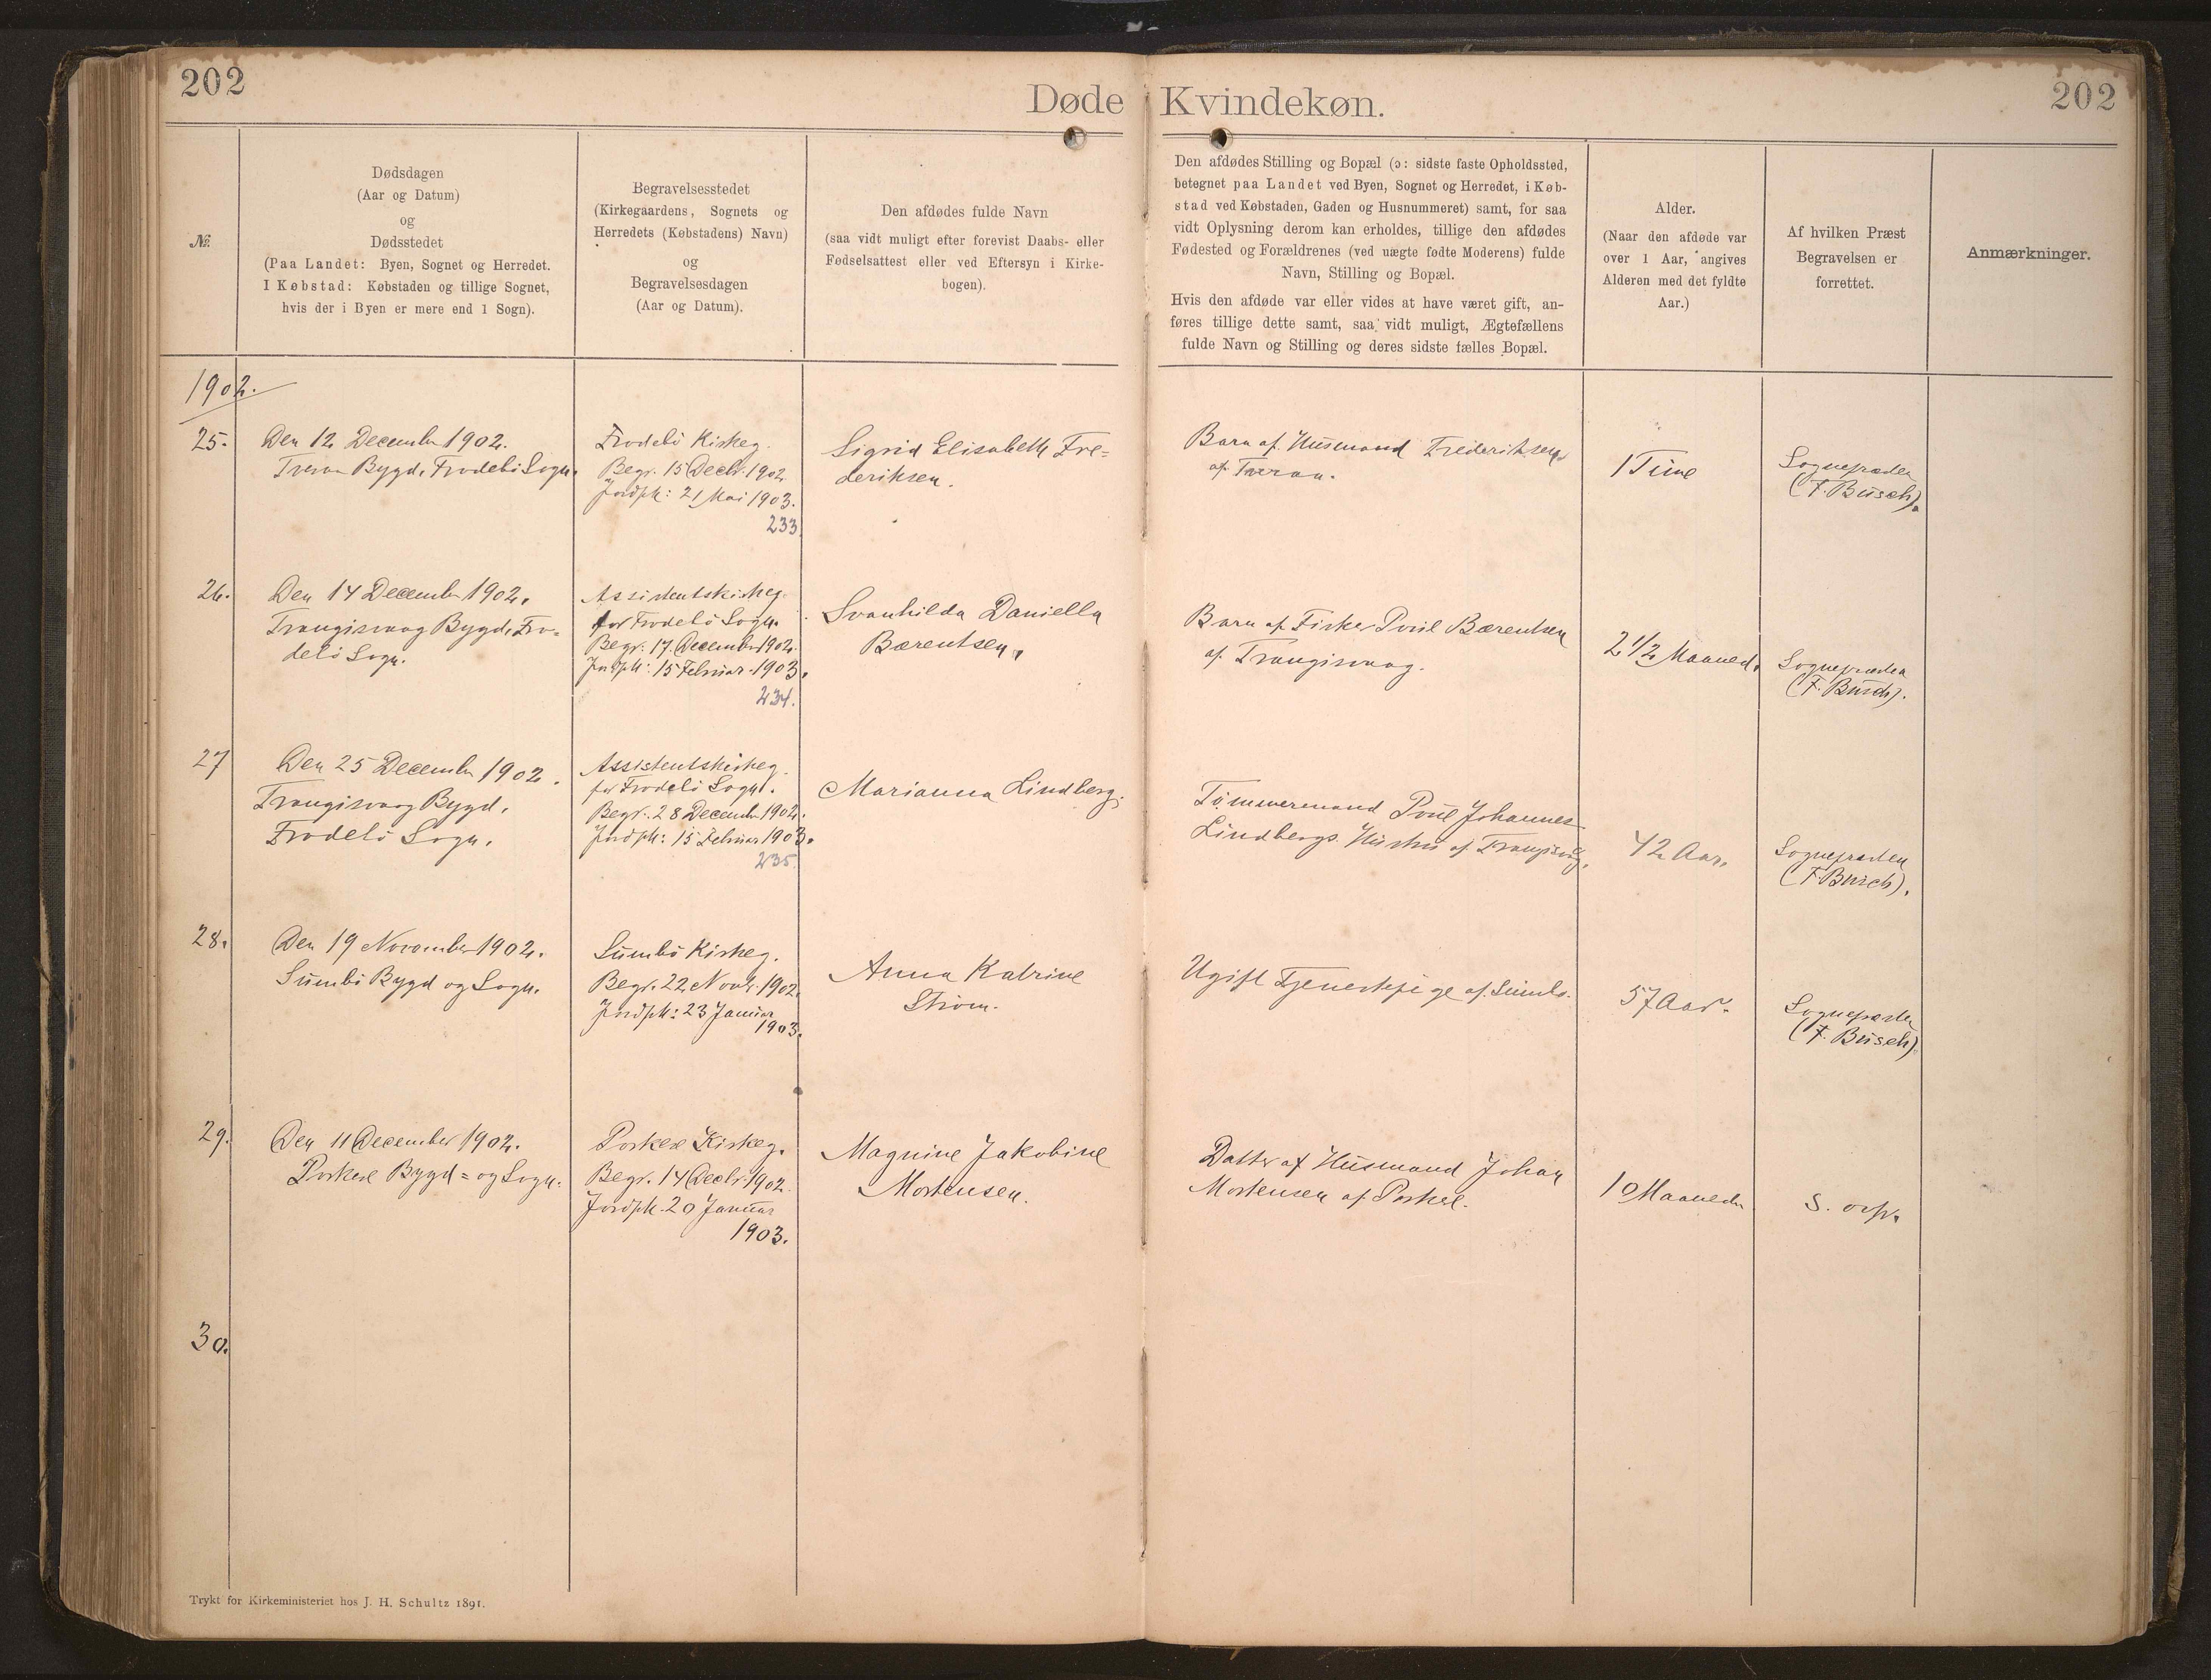 202
Døde Kvindekøn.
202
№
Dødsdagen
(Aar og Datum)
og
Dødsstedet
(Paa Landet: Byen, Sognet og Herredet.
I Købstad: Købstaden og tillige Sognet,
hvis der i Byen er mere end 1 Sogn).
Begravelsesstedet
(Kirkegaardens, Sognets og
Herredets (Købstadens) Navn)
og
Begravelsesdagen
(Aar og Datum).
Den afdødes fulde Navn
(saa vidt muligt efter forevist Daabs- eller
Fødselsattest eller ved Eftersyn i Kirke-
bogen).
Den afdødes Stilling og Bopæl (ɔ: sidste faste Opholdssted,
betegnet paa Landet ved Byen, Sognet og Herredet, i Køb-
stad ved Købstaden, Gaden og Husnummeret) samt, for saa
vidt Oplysning derom kan erholdes, tillige den afdødes
Fødested og Forældrenes (ved uægte fødte Moderens) fulde
Navn, Stilling og Bopæl.
Hvis den afdøde var eller vides at have været gift, an-
føres tillige dette samt, saa vidt muligt, Ægtefællens
fulde Navn og Stilling og deres sidste fælles Bopæl.
Alder.
(Naar den afdøde var
over 1 Aar, angives
Alderen med det fyldte
Aar.)
Af hvilken Præst
Begravelsen er
forrettet.
Anmærkninger.
1902.
25.
Den 12 December 1902.
Bygd, Frodebø Sogn.
Frodebø Kirkeg.
Begr. 15 Decbr. 1902
Jordpk: 21 Mai 1903.
233
Sigrid Elisabeth Fre=
deriksen.
Barn af Husmand Frederiksen
af
1 Time
Sognepræsten
(F. Busch).
26.
Den 14 December 1902.
Trangisvaag Bygd, Fro=
debø Sogn.
Assistentskirkeg.
for Frodebø Sogn.
Begr. 17. December 1902.
Jordpk: 15 Februar 1903.
234.
Svanhilda Daniella
Bærentsen.
Barn af Fisker Poul Bærentsen
af Trangisvaag.
2 1/2 Maaned.
Sognepræsten
(F. Busch).
27
Den 25 December 1902.
Trangisvaag Bygd,
Frodebø Sogn.
Assistentskirkeg.
for Frodebø Sogn.
Begr. 28 December 1902.
Jordpk: 15 Februar 1903.
235.
Marianna Lindberg.
Tømmermand Poul Johannes
Lindbergs Hustru af Trangisvag.
42 Aar.
Sognepræsten
(F. Busch).
28.
Den 19 November 1902.
Sumbø Bygd og Sogn.
Sumbø Kirkeg.
Begr. 22 Novbr. 1902.
Jordpk: 23 Januar
1903.
Anna Katrine
Strøm.
Ugift Tjenestepige af Sumbø.
57 Aar.
Sognepræsten
(F. Busch).
29.
Den 11 December 1902.
Porkere Bygd= og Sogn.
Porkere Kirkeg.
Begr. 14 Decbr. 1902.
Jordpk. 20 Januar
1903.
Magnine Jakobine
Mortensen.
Datter af Husmand Johan
Mortensen af Porkere.
10 Maaneder
S.
30.
Trykt for Kirkeministeriet hos J. H. Schultz 1891.